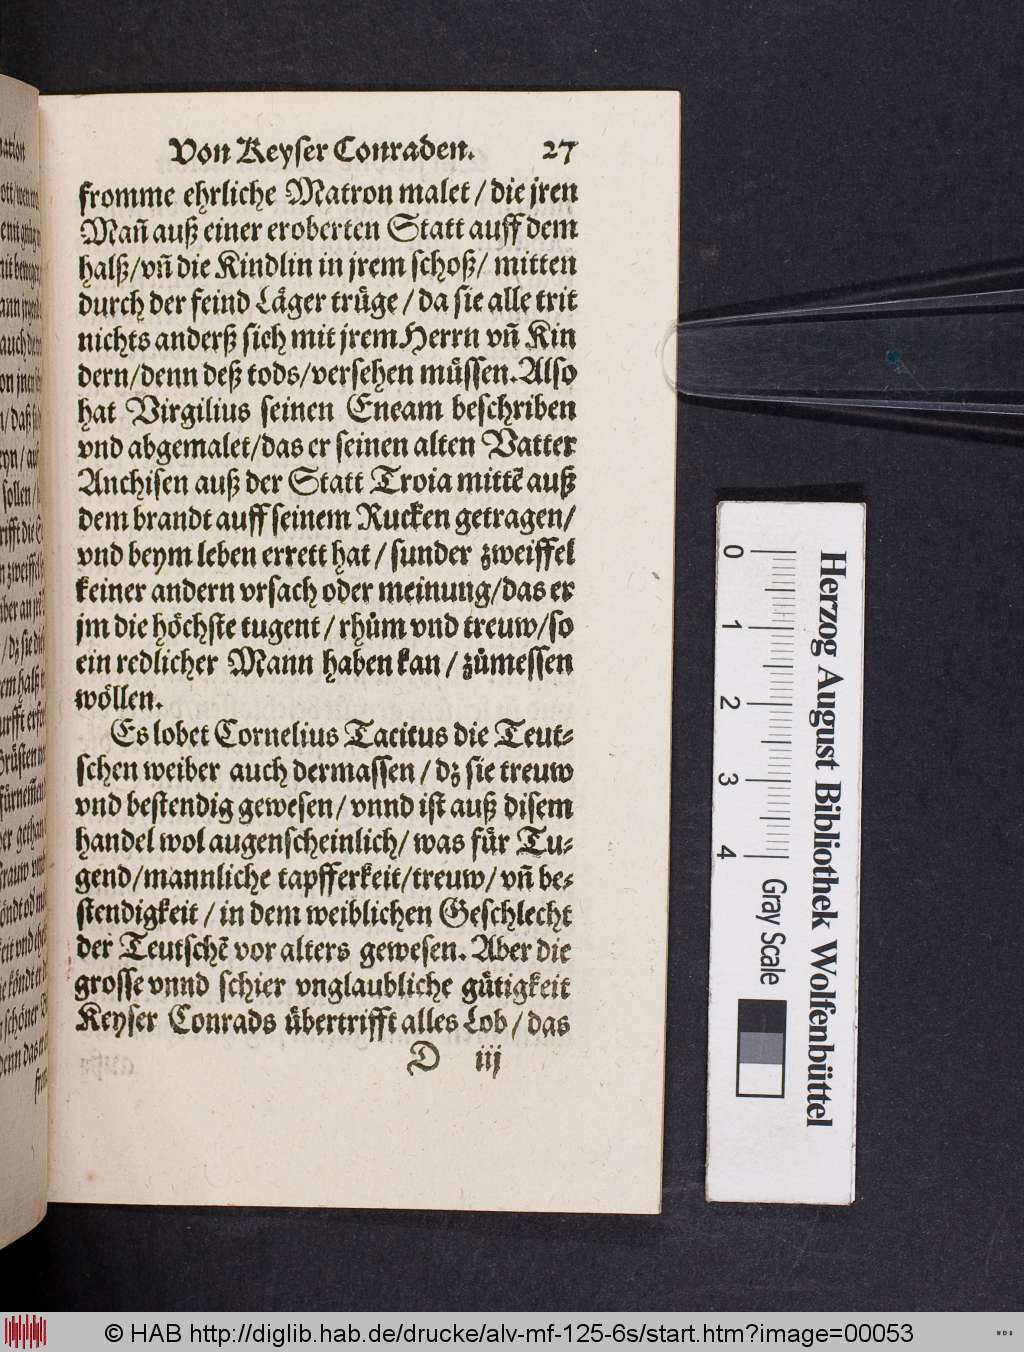 Von Keyser Conraden. 27
fromme ehrliche Matron malet / die jren
Mañ auß einer eroberten Statt auff dem
halß / vñ die Kindlin in jrem schoß / mitten
durch der feind Läger trüge / da sie alle trit
nichts anderß sich mit jrem Herrn vñ Kin
dern / denn deß tods / versehen müssen. Also
hat Virgilius seinen Eneam beschriben
vnd abgemalet / das er seinen alten Vatter
Anchisen auß der Statt Troia mittẽ auß
dem brandt auff seinem Rucken getragen /
vnd beym leben errett hat / sunder zweiffel
keiner andern vrsach oder meinung / das er
jm die höchste tugent / rhům vnd treuw / so
ein redlicher Mann haben kan / zůmessen
wöllen.
Es lobet Cornelius Tacitus die Teut⸗
schen weiber auch dermassen / dz sie treuw
vnd bestendig gewesen / vnnd ist auß disem
handel wol augenscheinlich / was für Tu⸗
gend / mannliche tapfferkeit / treuw / vñ be⸗
stendigkeit / in dem weiblichen Geschlecht
der Teutschẽ vor alters gewesen. Aber die
grosse vnnd schier vnglaubliche gütigkeit
Keyser Conrads übertrifft alles Lob / das
D iij
0 1 2 3 4 Gray Scale
Herzog August Bibliothek Wolfenbüttel
© HAB http://diglib.hab.de/drucke/alv-mf-125-6s/start.htm?image=00053